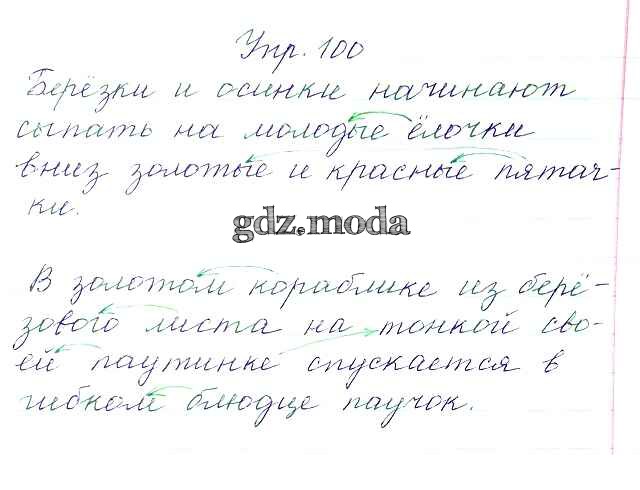 Упр. 100
Берёзки и осинки начинают
сыпать на молодые ёлочки
вниз золотые и красные пятач-
ки.
gdz.moda
В золотом кораблике из берё-
зового листа на тонкой сво-
ей паутинке спускается в
гибком блюдце паучок.